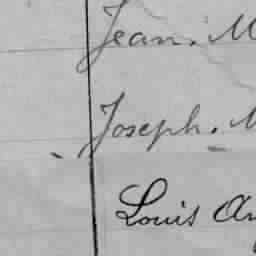 Jean. M
Joseph. M
Louis An